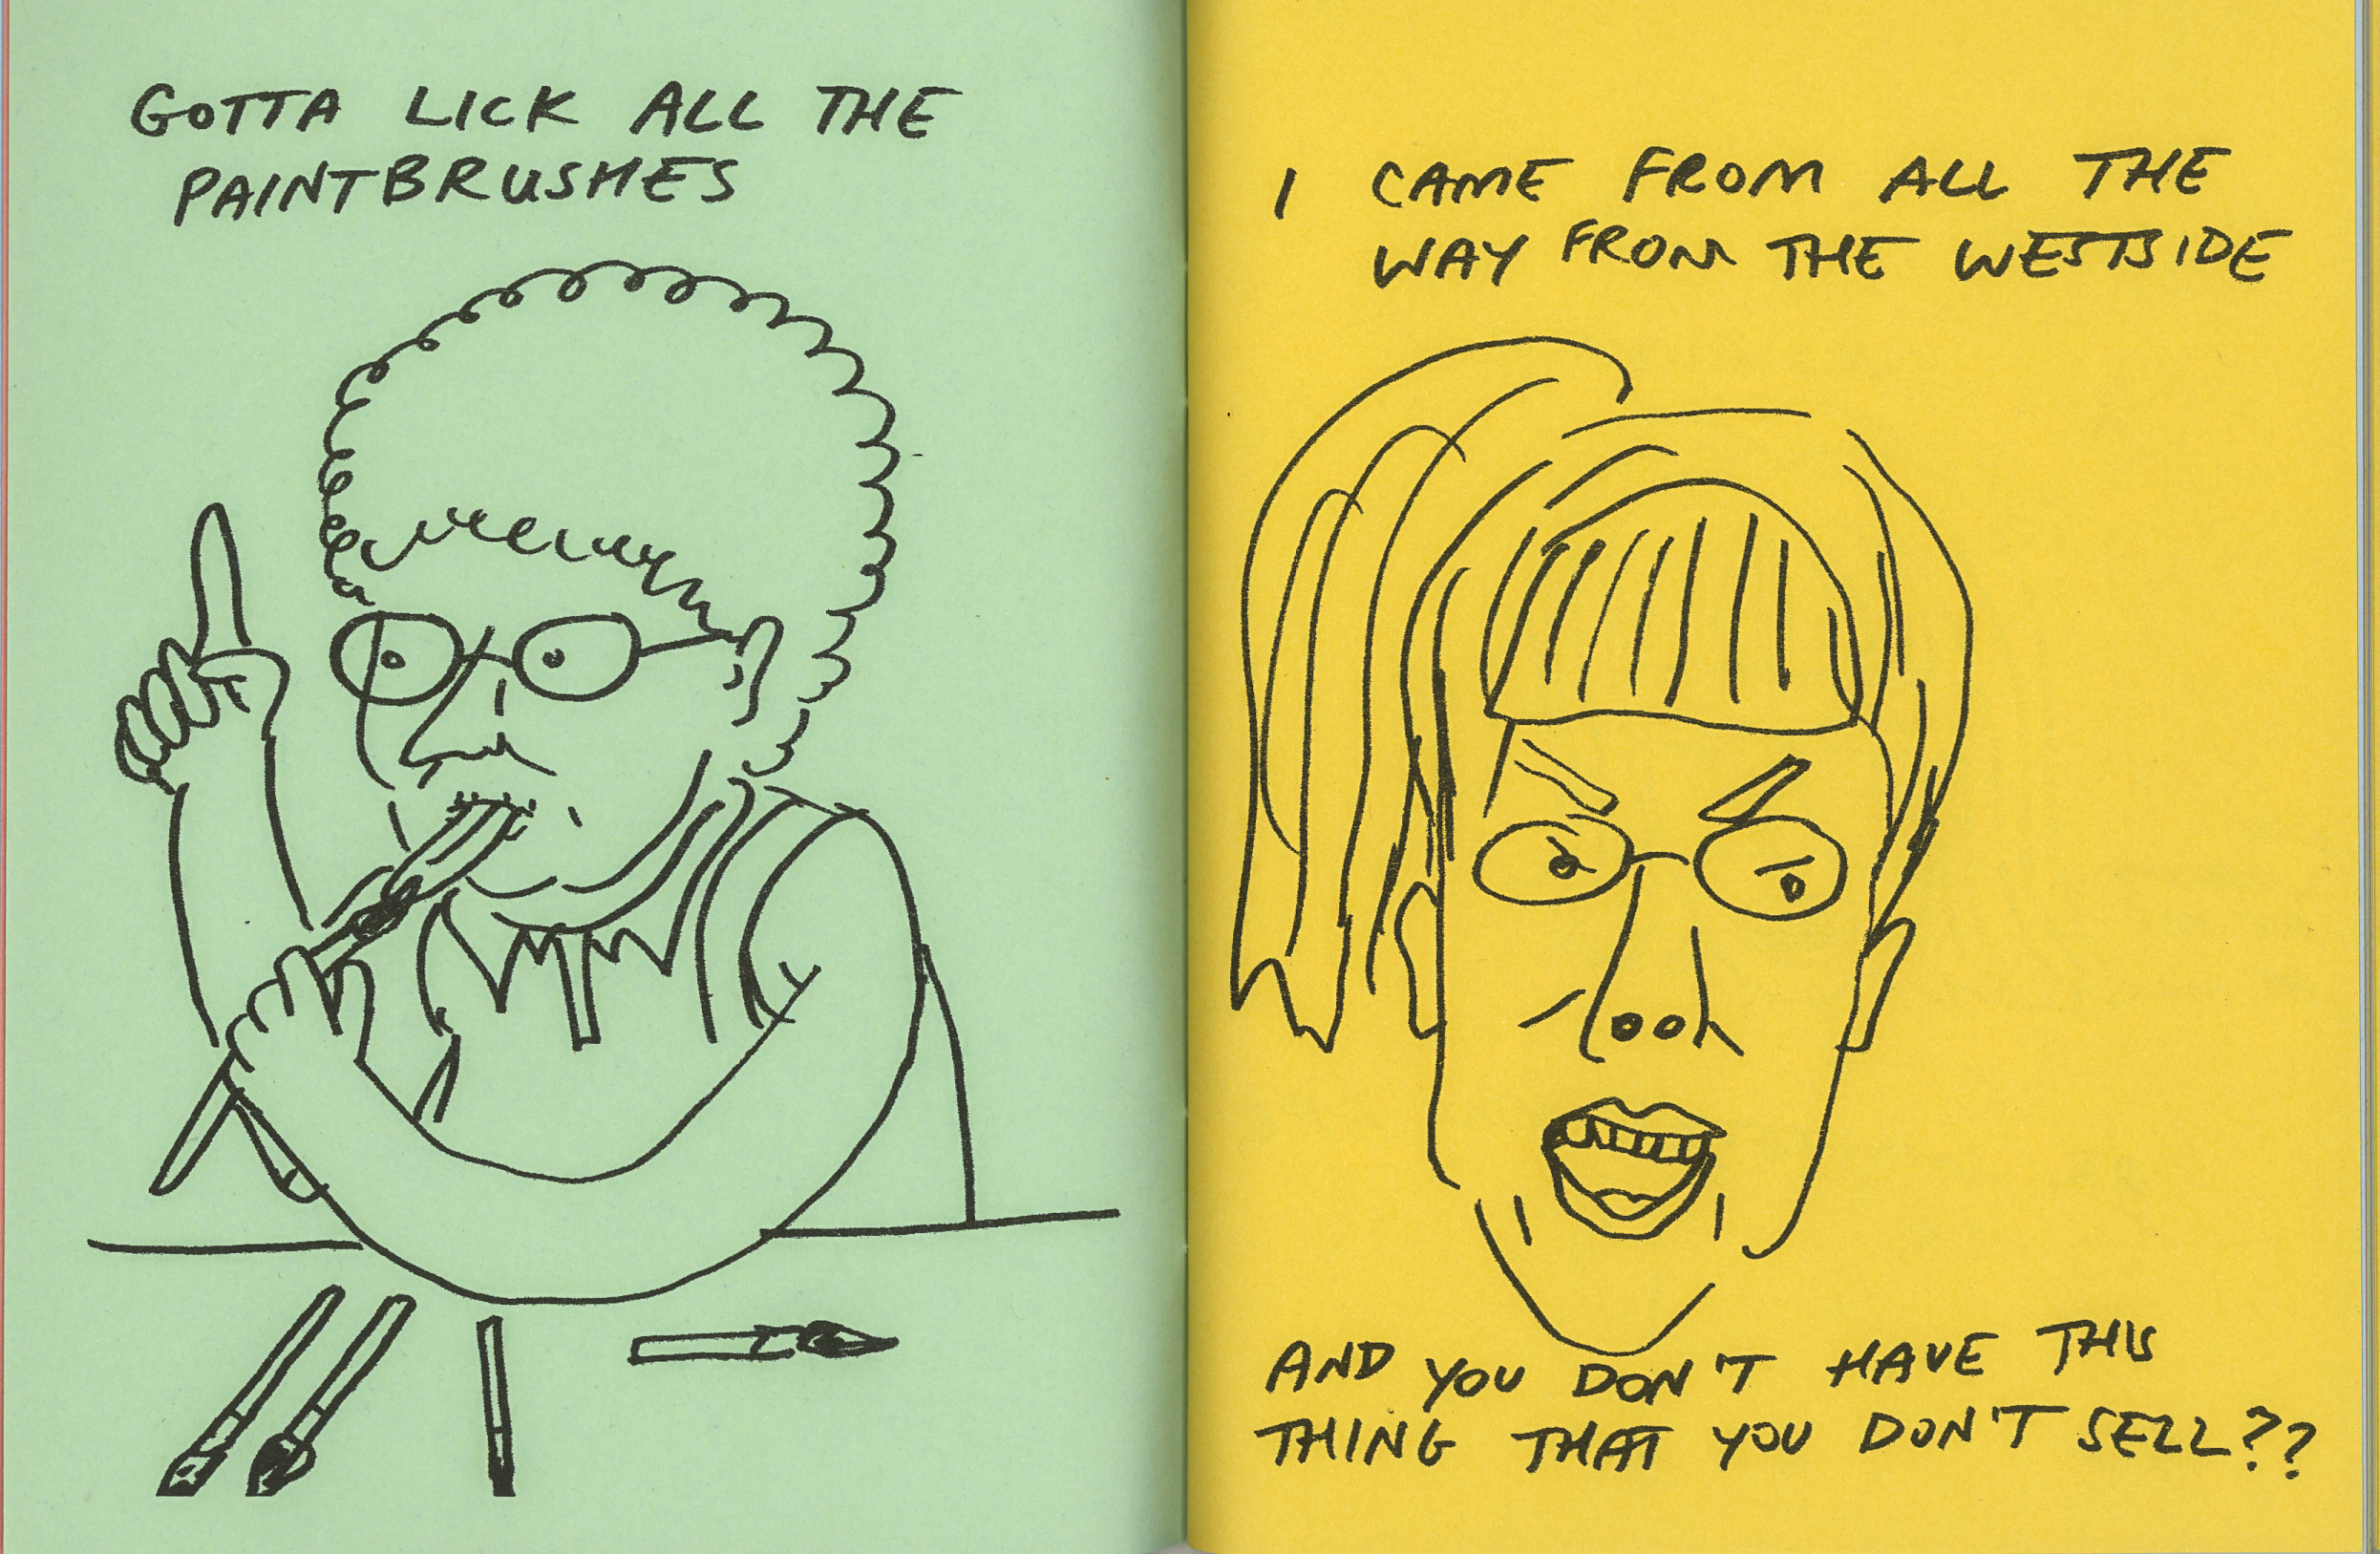 GOTTA LICK ALL THE
PAINTBRUSHES
I CAME FROM ALL THE
WAY FROM THE WESTSIDE
AND YOU DON'T HAVE THIS
THING THAT YOU DON'T SELL??